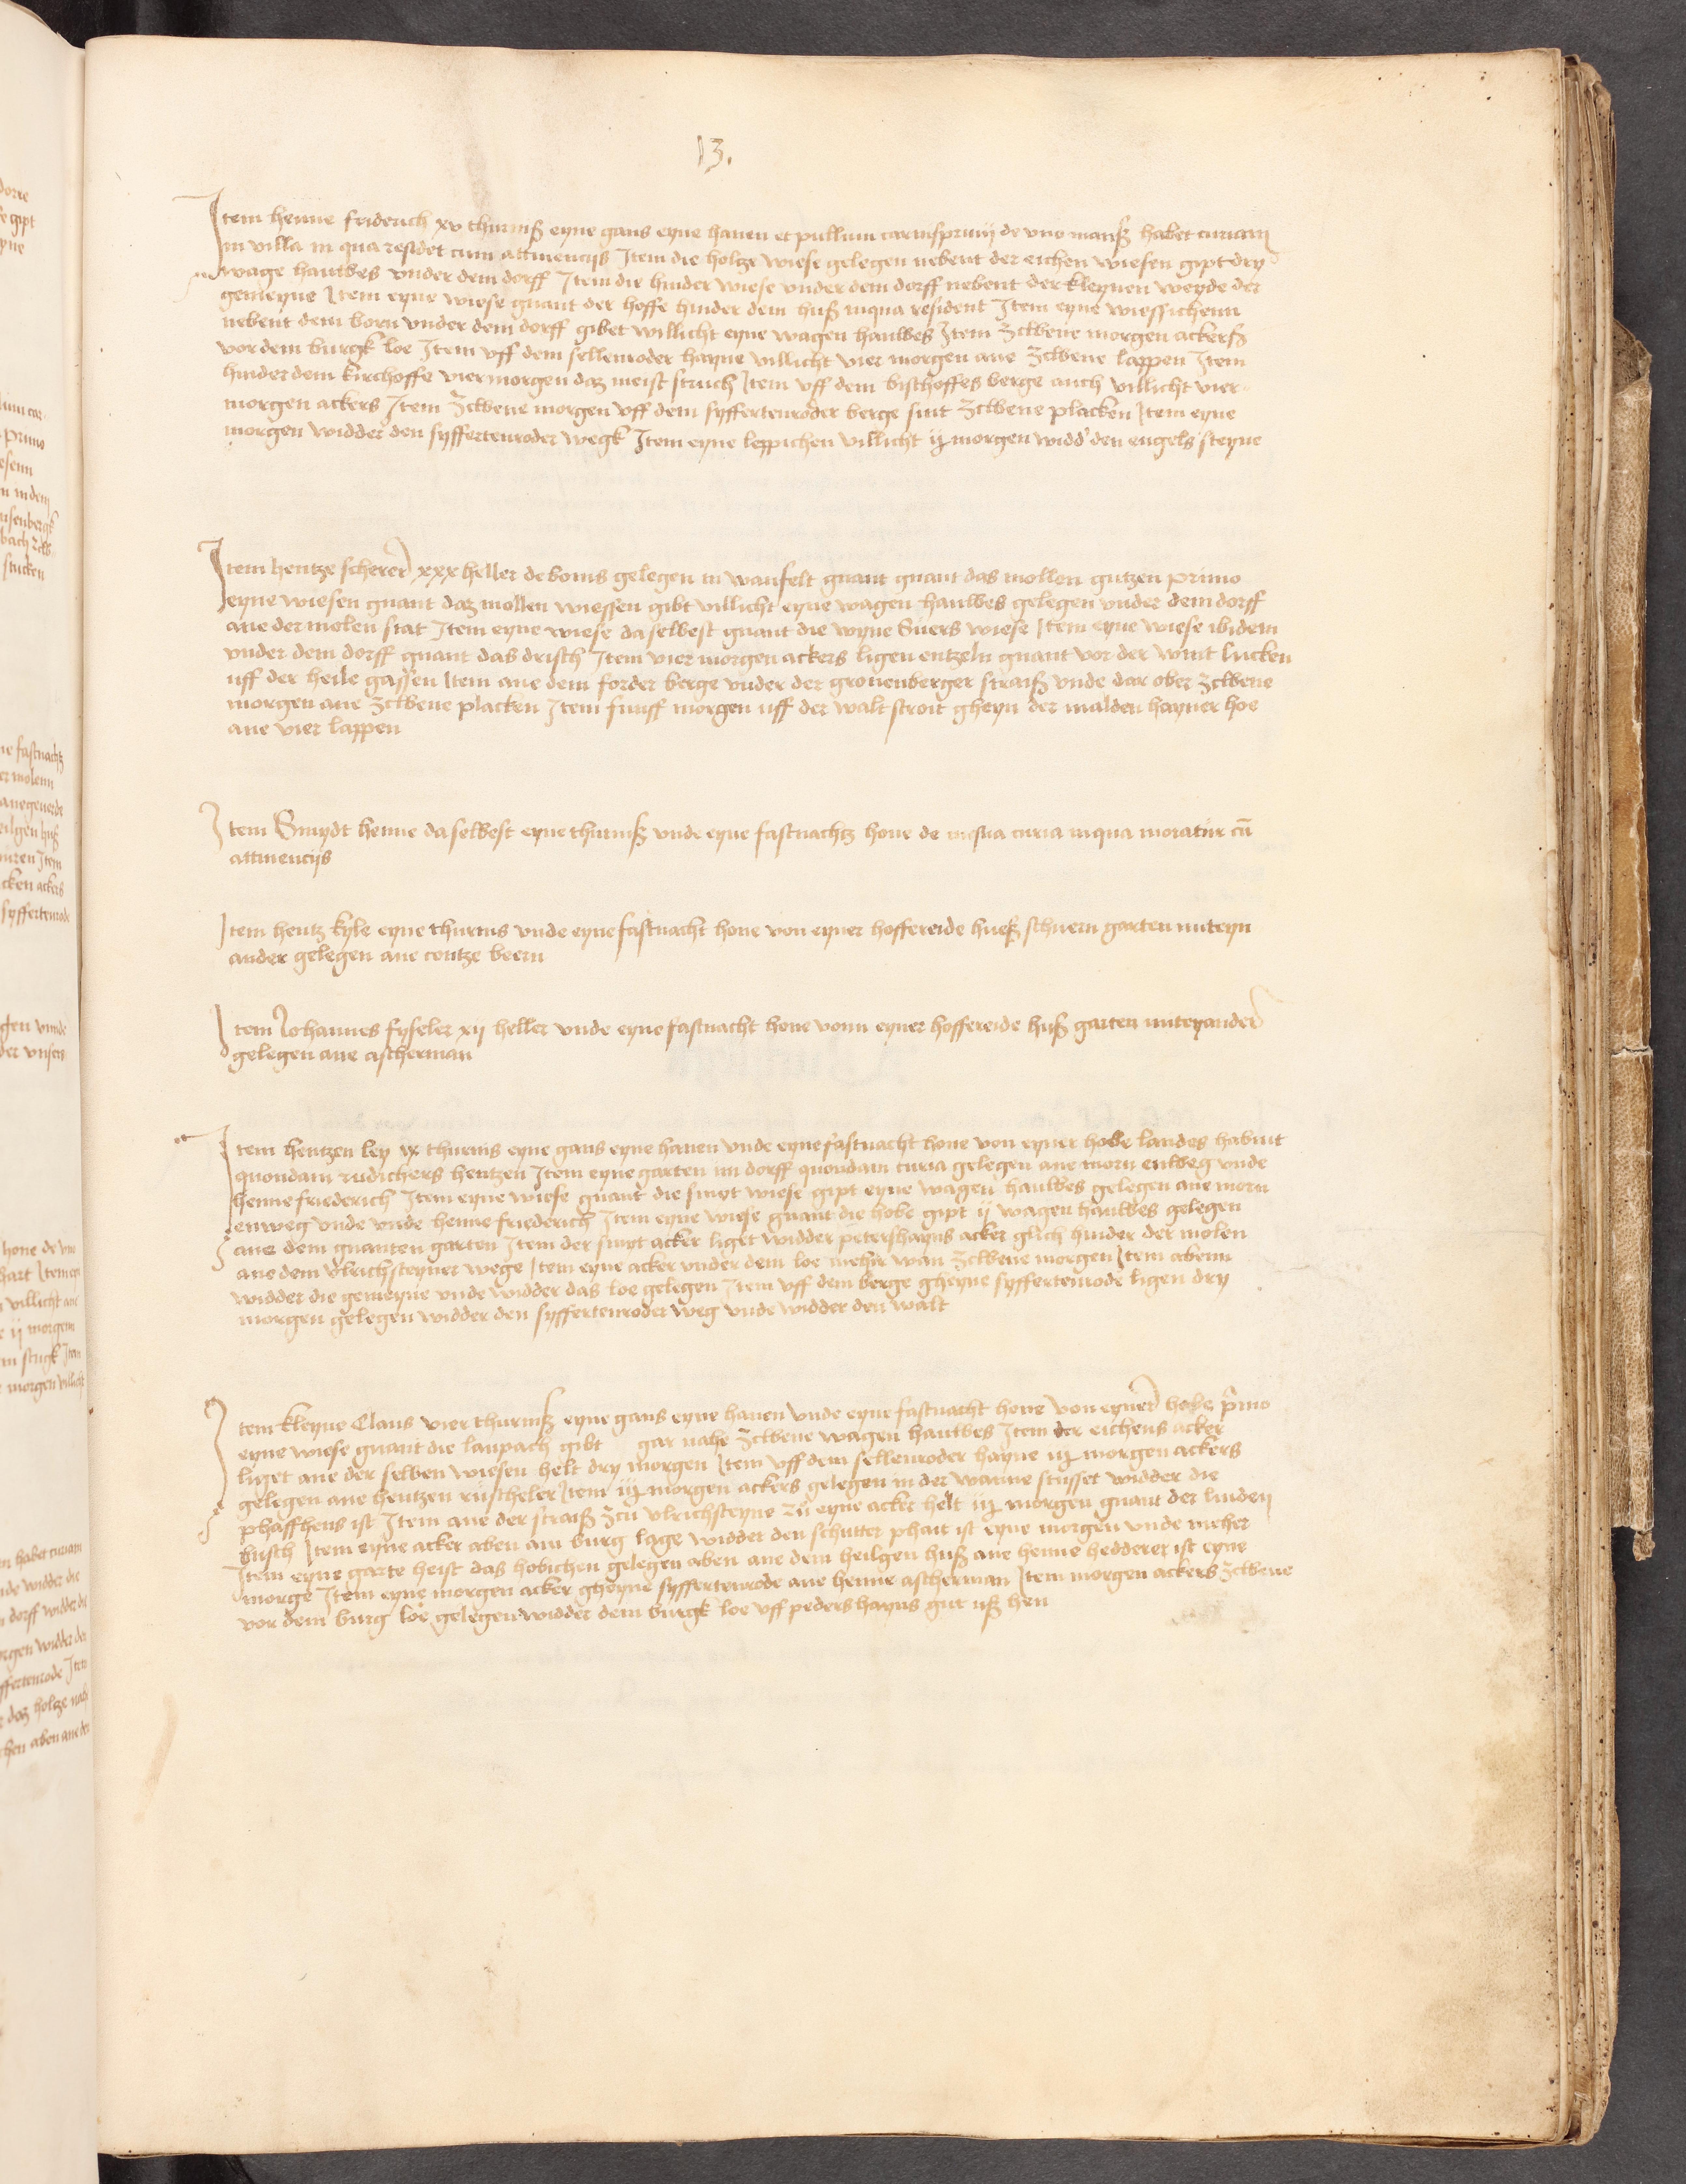 13.
Item henne friderich xv thurnß eyne gans eyne hanen et pullum carnispruuij de vno manß habet curiam
in villa in qua residet cum attinencijs Item die holtze wiese gelegen nebent der eichen wiesen gipt dry
wage hauwes vnder dem dorff Item die hinder wiese vnder dem dorff nebent der kleynen weyde der
gemeyne Item eyne wiese gnant der hoffe hinder dem huß inqua resident Item eyne wiessichenn
nebent dem born vnder dem dorff gibet willicht eyne wagen hauwes Item zcwene morgen ackerß
vor dem burgk loe Item vff dem sellenroder hayne villicht vier morgen ane zcwene lappen Item
hinder dem kirchoffe vier morgen daz meist struch Item vff dem bischoffes berge auch villicht vier
morgen ackers Item zcwene morgen vff dem syffertenroder berge sint zcwene placken Item eyne
morgen widder den syffertenroder wegk Item eyne leppichen villicht ij morgen widd' den engels steyne
Item hentze scherer xxx heller de bonis gelegen in wanfelt gnant gnant das mollen gutzen primo
eyne wiesen gnant daz mollen wiessen gibt villicht eyne wagen hauwes gelegen vnder dem dorff
ane der molen stat Item eyne wiese daselbest gnant die wyne Suers wiese Item eyne wiese ibidem
vnder dem dorff gnant das drisch Item vier morgen ackers ligen entzeln gnant vor der wint lucken
uff der heile gassen Item ane dem forder berge vnder der gronenberger straiß vnde dar ober zcwene
morgen ane zcwene placken Item funff morgen uff der walt stroit gheyn der malden hayner hoe
ane vier lappen
Item Smydt henne daselbest eyne thurnß vnde eyne fastnachtz hone de curia inqua moratur cu
attinencijs
Item hentz kyle eyne thurnis vnde eyne fastnacht hone von eyner hoffereide hueß schuern garten miteyn
ander gelegen ane contze beern
Item Johannes fyseler xij heller vnde eyne fastnacht hone vonn eyner hoffereide huß garten miteyander
gelegen ane ascherman
Item hentzen ley ix thurnis eyne gans eyne hanen vnde eyne fastnacht hone von eyner hobe landes habuit
quondam rudichers hentzen Item eyne garten im dorff quondam curia gelegen ane morn enweg vnde
henne friederich Item eyne wiese gnant die smyt wiese gipt eyne wagen hauwes gelegen ane morn
enweg vnde vnde henne friederich Item eyne wiese gnant die hobe gipt ij wagen hauwes gelegen
ane dem gnanten garten Item der smyt acker liget widder petershayns acker glich hinder der molen
ane dem vlrichsteyner wege Item eyne acker vnder dem loe mehir wan zcwene morgen Item abenn
widder die gemeyne vnde widder das loe gelegen Item vff dem berge gheyne syffertenrode ligen dry
morgen gelegen widder den syffertenroder weg vnde widder den walt
Item kleyne Claus vier thurniß eyne gans eyne hanen vnde eyne fastnacht hone von eyner hobe p'mo
eyne wiese gnant die laupach gibt gar nahe zcwene wagen hauwes Item der eichens acker
liget ane der selben wiesen helt dry morgen Item vff dem sellenroder hayne iij morgen ackers
gelegen ane hentzen ruscheler Item iij morgen ackers gelegen in der wanne stusset widder die
phaffhens ist Item ane der straiß zcu vlrichsteyne zu eyne acker helt iij morgen gnant der linden
busch Item eyne acker aben am burg lage widder den schutter phait ist eyne morgen vnde meher
Item eyne garte heist das hobichen gelegen aben ane dem heilgen huß ane henne hedderer ist eyne
morge Item eyne morgen acker gheyne syffertenrode ane henne ascherman Item morgen ackers zcwene
vor dem burg loe gelegen widder dem burgk loe vff peders hayns gut uß hen